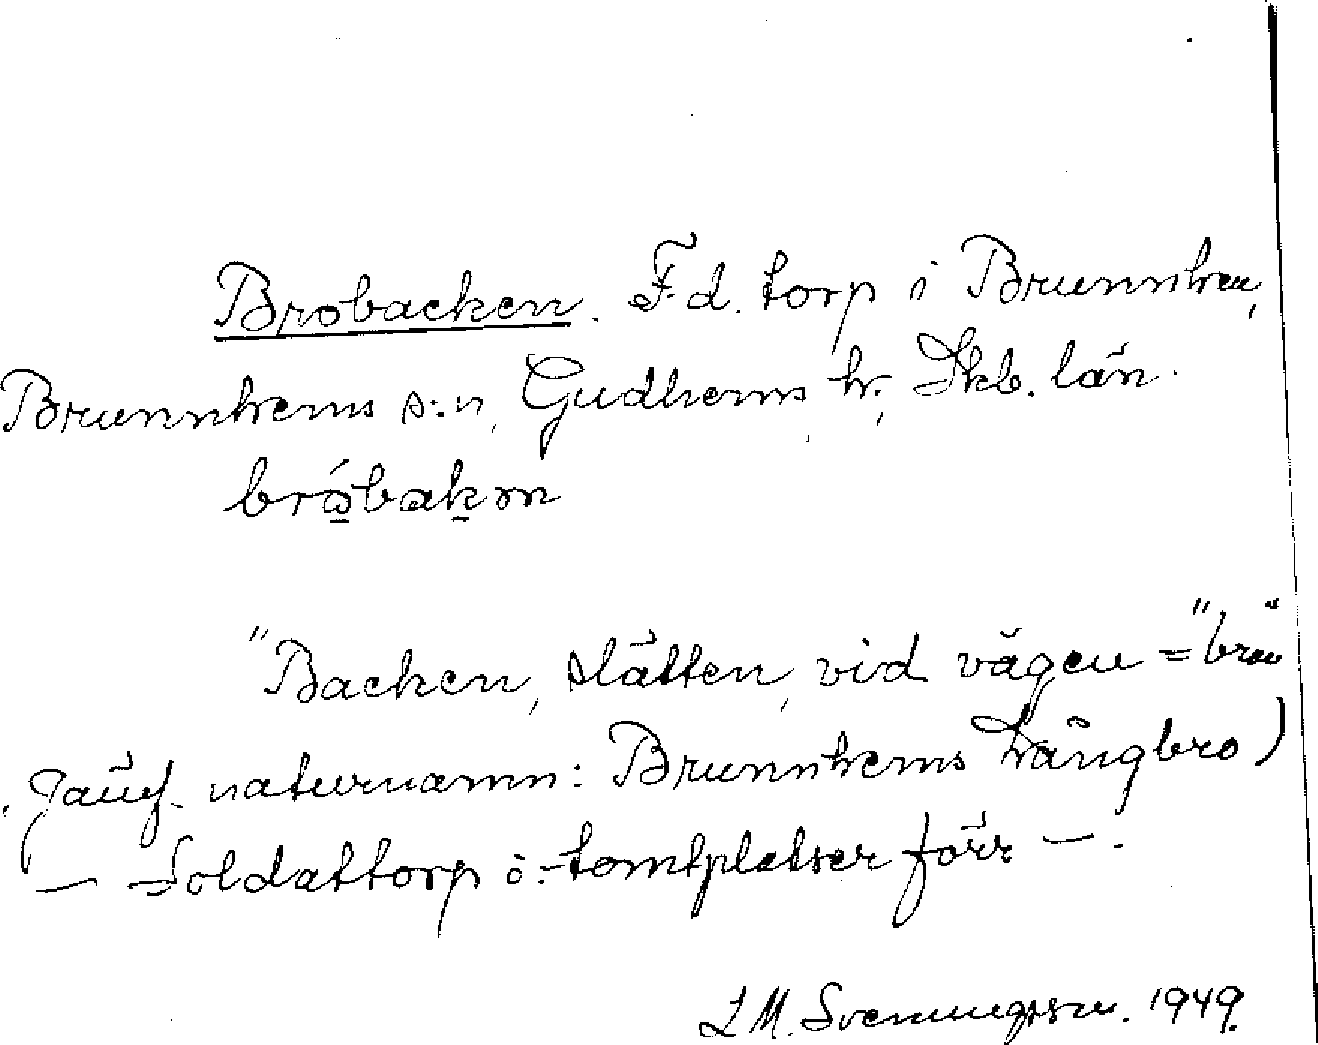 Brobacken. F.d. torp i Brunnhem,
Brunnhems s:n, Gudhems hr, Skb. län.
bró̱baḵən
"Backen, slätten, vid vägen = "bron"
Jämf. naturnamn: Brunnhems Långbro)
— Soldattorp o. tomtplatser förr —.
L M. Svenungsson. 1949.